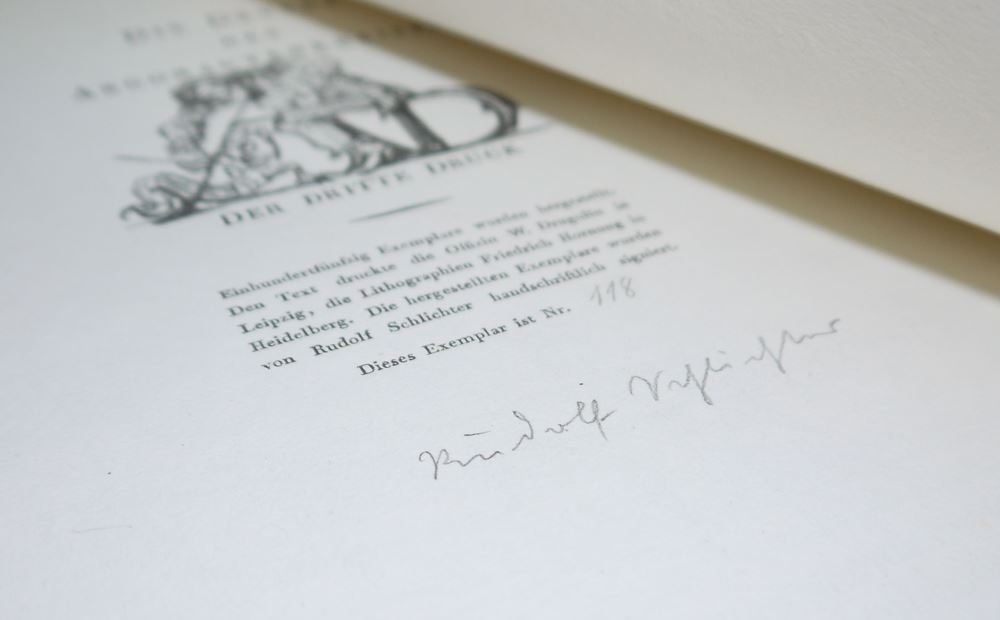 DER DRITTE DRUCK
Einhundertfünfzig Exemplare wurden hergestellt.
Den Text druckte die Offizin W. Drugulin in
Leipzig, die Lithographien Friedrich Hornung in
Heidelberg. Die hergestellten Exemplare wurden
von Rudolf Schlichter handschriftlich signiert.
Dieses Exemplar ist Nr. 118
Rudolf Schlichter